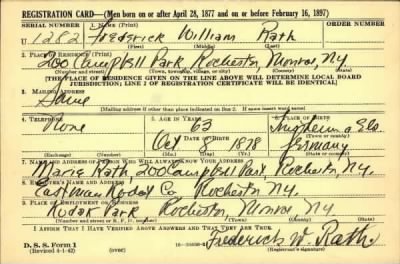 REGISTRATION CARD—(Men born on or after April 28, 1877 and on or before February 16, 1897)
SERIAL NUMBER 1. NAME (Print)
U 1282 Frederick William Rath
(First) (Middle) (Last)
2. PLACE OF RESIDENCE (Print)
200 Campbell Park, Rochester, Monroe, N.Y.
(Number and street) (Town, township, village, or city) (County) (State)
[THE PLACE OF RESIDENCE GIVEN ON THE LINE ABOVE WILL DETERMINE LOCAL BOARD
JURISDICTION; LINE 2 OF REGISTRATION CERTIFICATE WILL BE IDENTICAL]
3. MAILING ADDRESS
Same
[Mailing address if other than place indicated on line 2. If same insert word same]
4. TELEPHONE 5. AGE IN YEARS 6. PLACE OF BIRTH
None 63
DATE OF BIRTH (Town or county)
Oct 8 1878 Germany
(Exchange) (Number) (Mo.) (Day) (Yr.) (State or country)
7. NAME AND ADDRESS OF PERSON WHO WILL ALWAYS KNOW YOUR ADDRESS
Marie Rath, 200 Campbell Park, Rochester, N.Y.
8. EMPLOYER'S NAME AND ADDRESS
Eastman Kodak Co Rochester N.Y.
9. PLACE OF EMPLOYMENT OR BUSINESS
Kodak Park Rochester Monroe N.Y.
(Number and street or R. F. D. number) (Town) (County) (State)
I AFFIRM THAT I HAVE VERIFIED ABOVE ANSWERS AND THAT THEY ARE TRUE.
D. S. S. Form 1 Frederick W. Rath
(Revised 4-1-42) (over) (Registrant's signature)